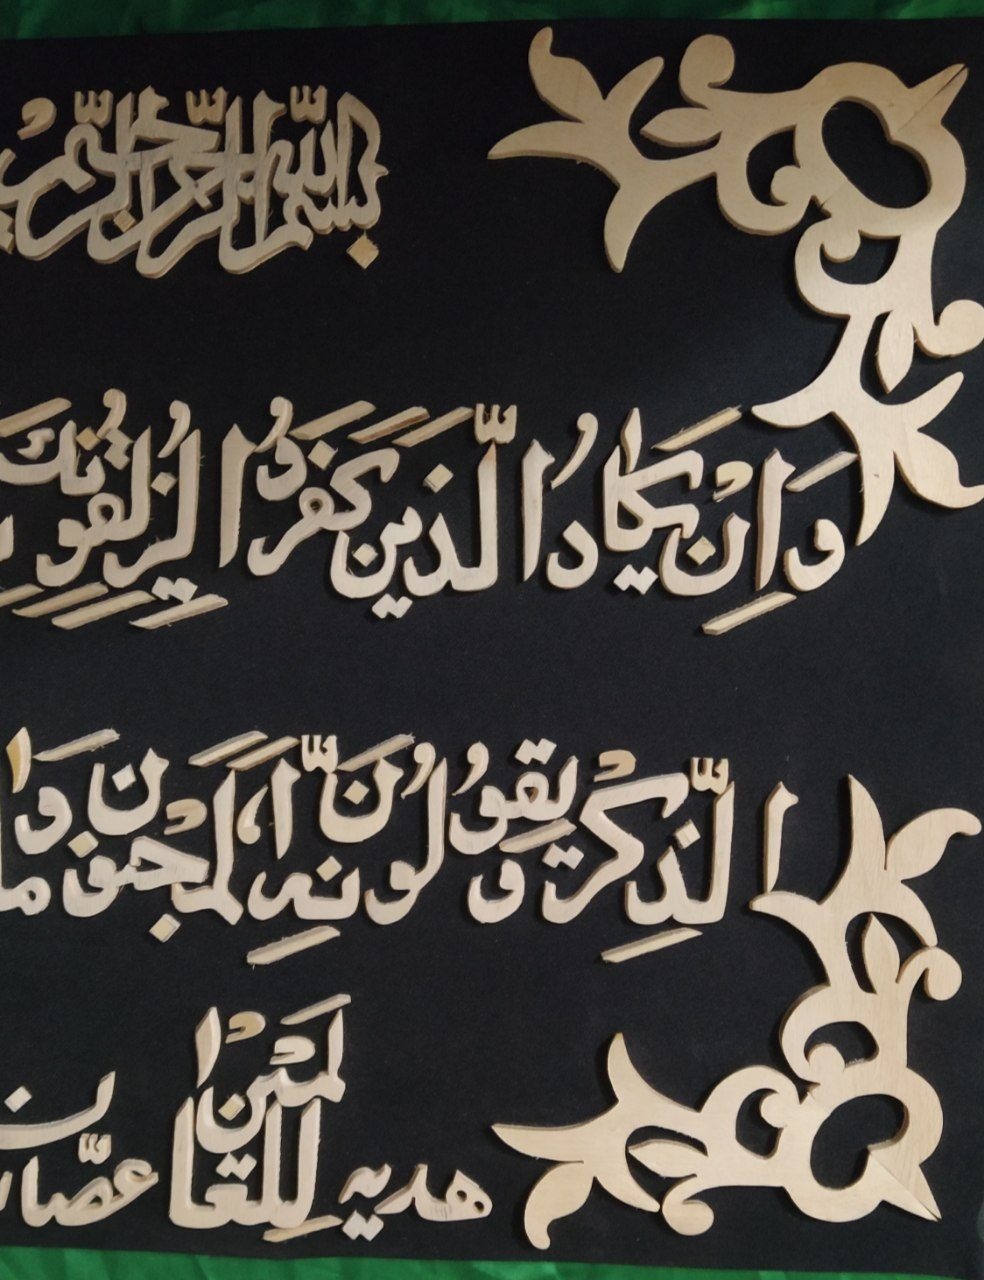 بسم الله الرحمن الرحيم
وَإِنْ يَكَادُ الَّذِينَ كَفَرُوا لَيُزْلِقُونَكَ
الذِّكْرَ وَيَقُولُونَ إِنَّهُ لَمَجْنُونٌ وَمَا
لِلْعَالَمِينَ
هدیه